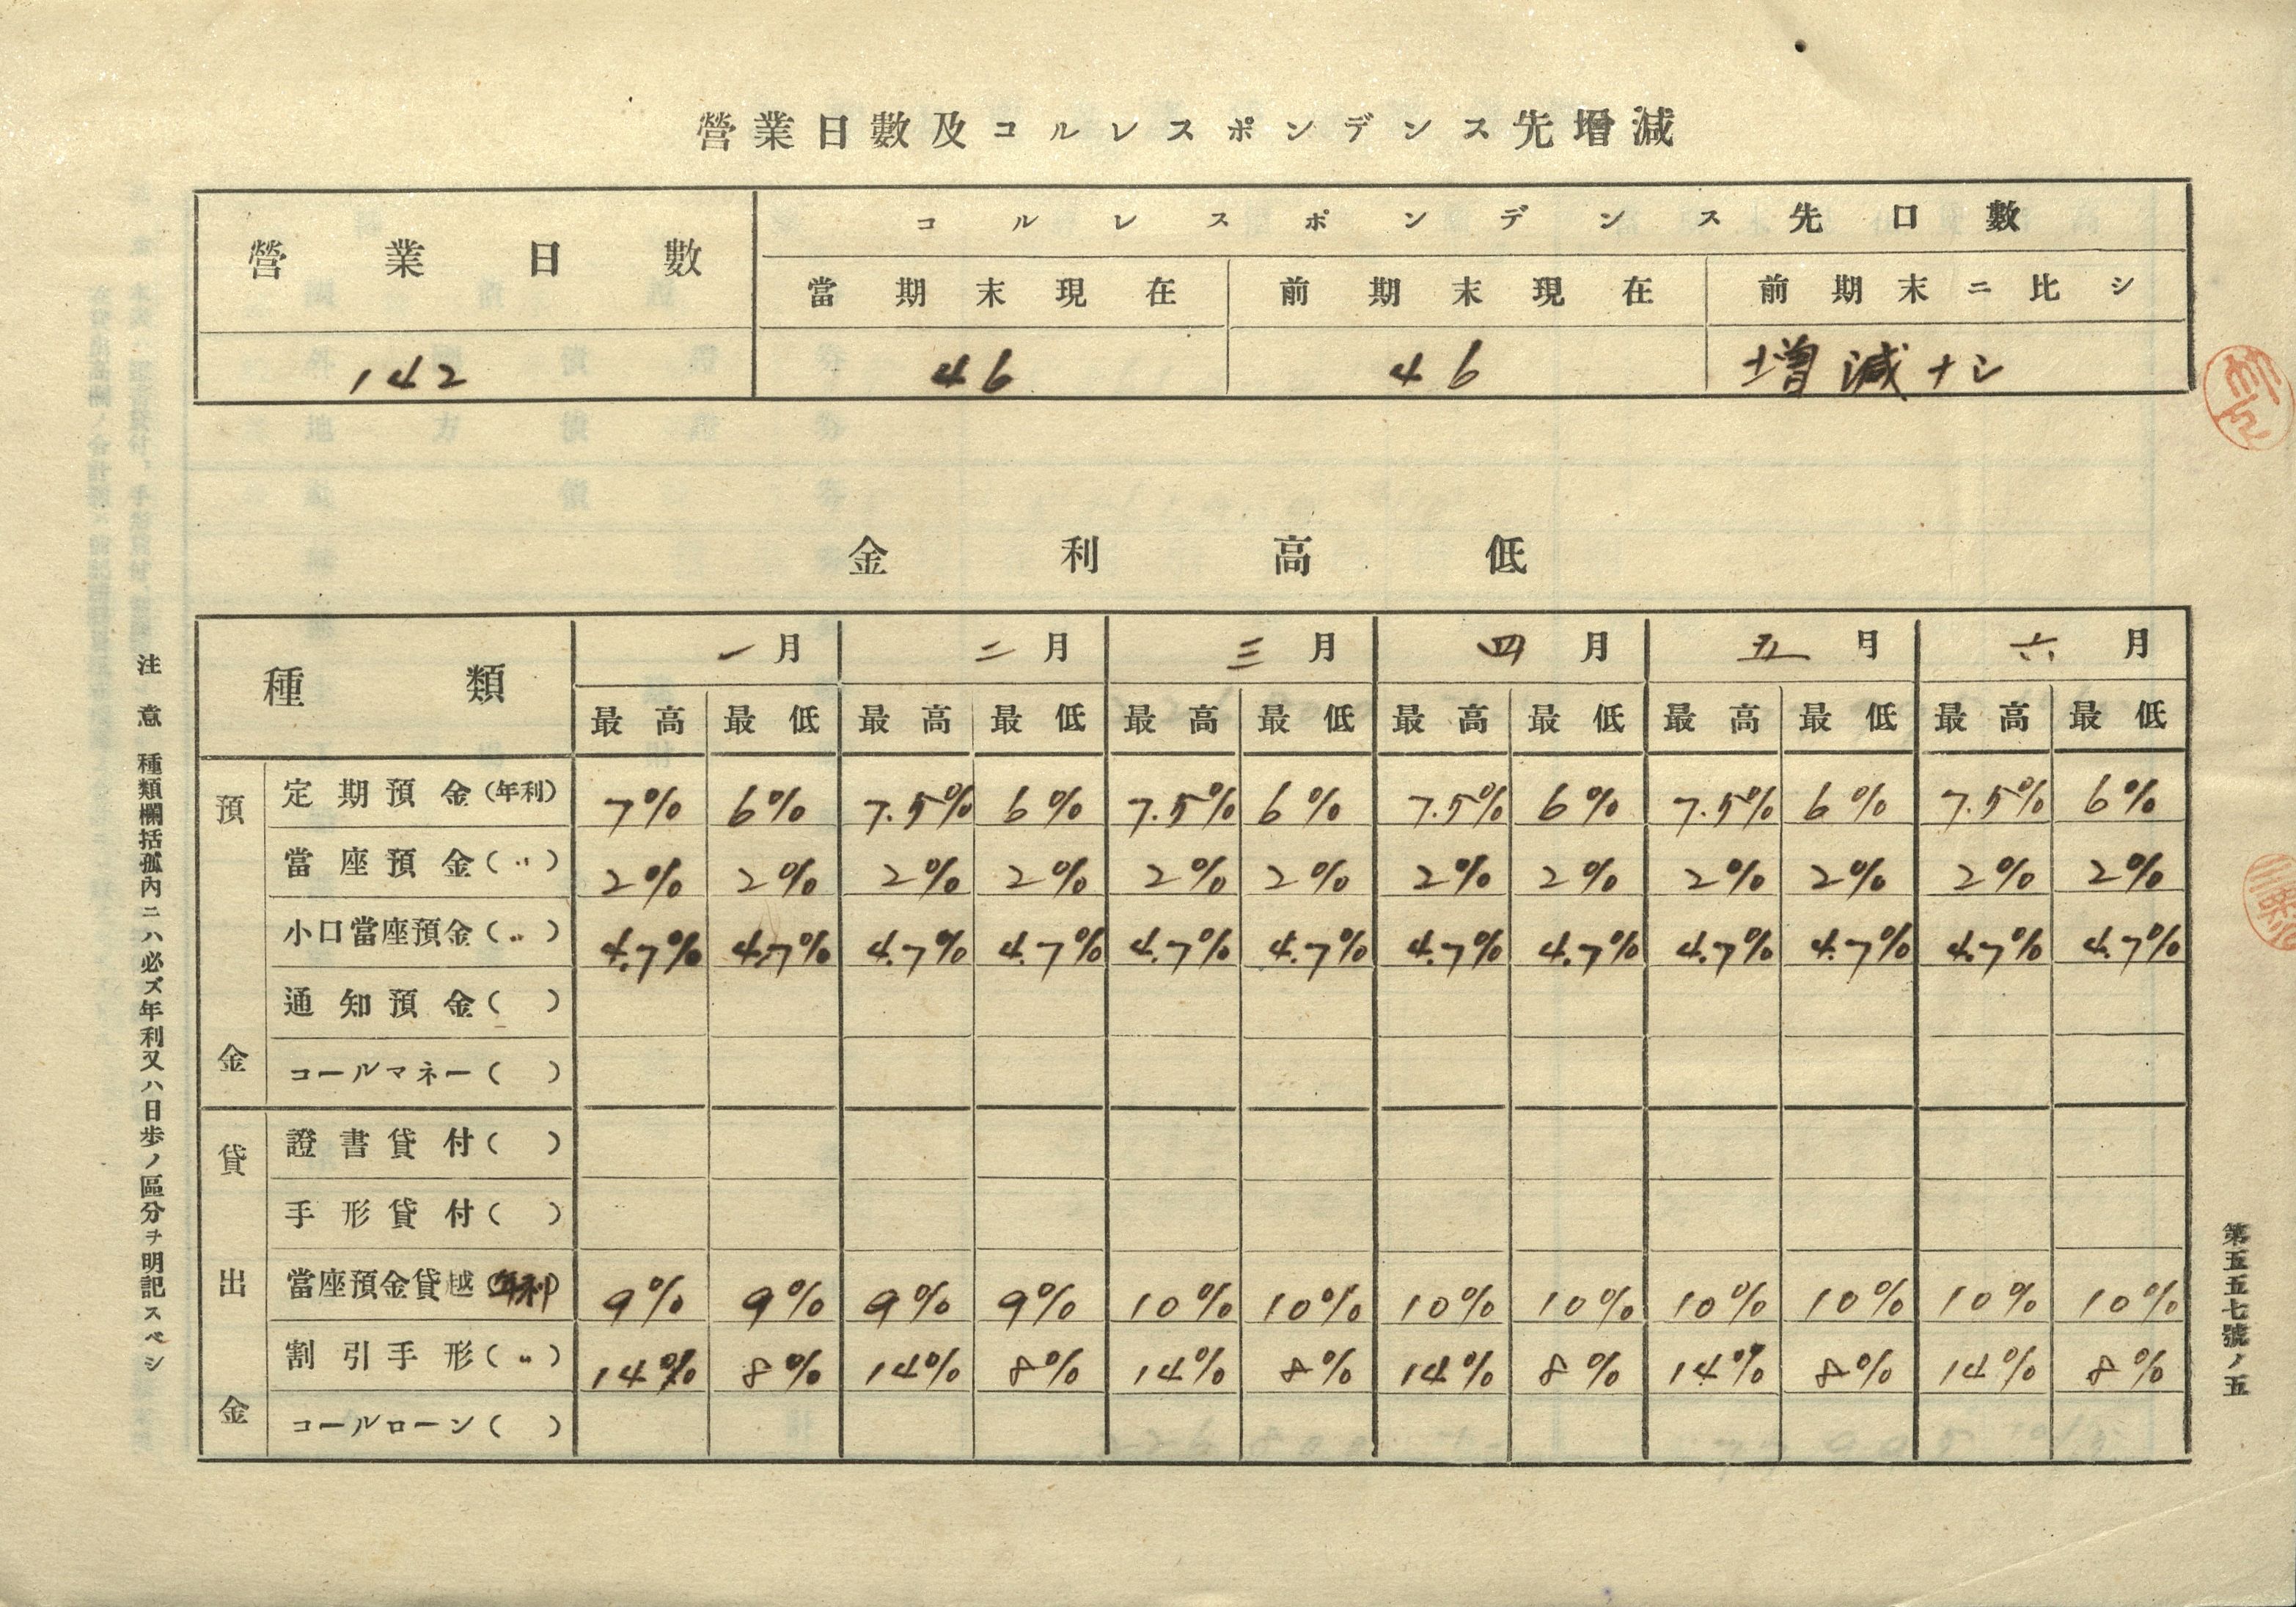 營業日數及コルレスポンデンス先增減
營業日數
コルレスポンデンス先口數
當期末現在 前期末現在 前期末ニ比シ
142 46 46 增減ナシ
金利高低
種類 一月 二月 三月 四月 五月 六月
最高 最低 最高 最低 最高 最低 最高 最低 最高 最低 最高 最低
預金
定期預金(年利) 7% 6% 7.5% 6% 7.5% 6% 7.5% 6% 7.5% 6% 7.5% 6%
當座預金(〃) 2% 2% 2% 2% 2% 2% 2% 2% 2% 2% 2% 2%
小口當座預金(〃) 4.7% 4.7% 4.7% 4.7% 4.7% 4.7% 4.7% 4.7% 4.7% 4.7% 4.7% 4.7%
通知預金( )
コールマネー( )
貸出金
證書貸付( )
手形貸付( )
當座預金貸越(年利) 9% 9% 9% 9% 10% 10% 10% 10% 10% 10% 10% 10%
割引手形(〃) 14% 8% 14% 8% 14% 8% 14% 8% 14% 8% 14% 8%
コールローン( )
注意 種類欄括孤內ニハ必ズ年利又ハ日步ノ區分ヲ明記スベシ
第五五七號ノ五